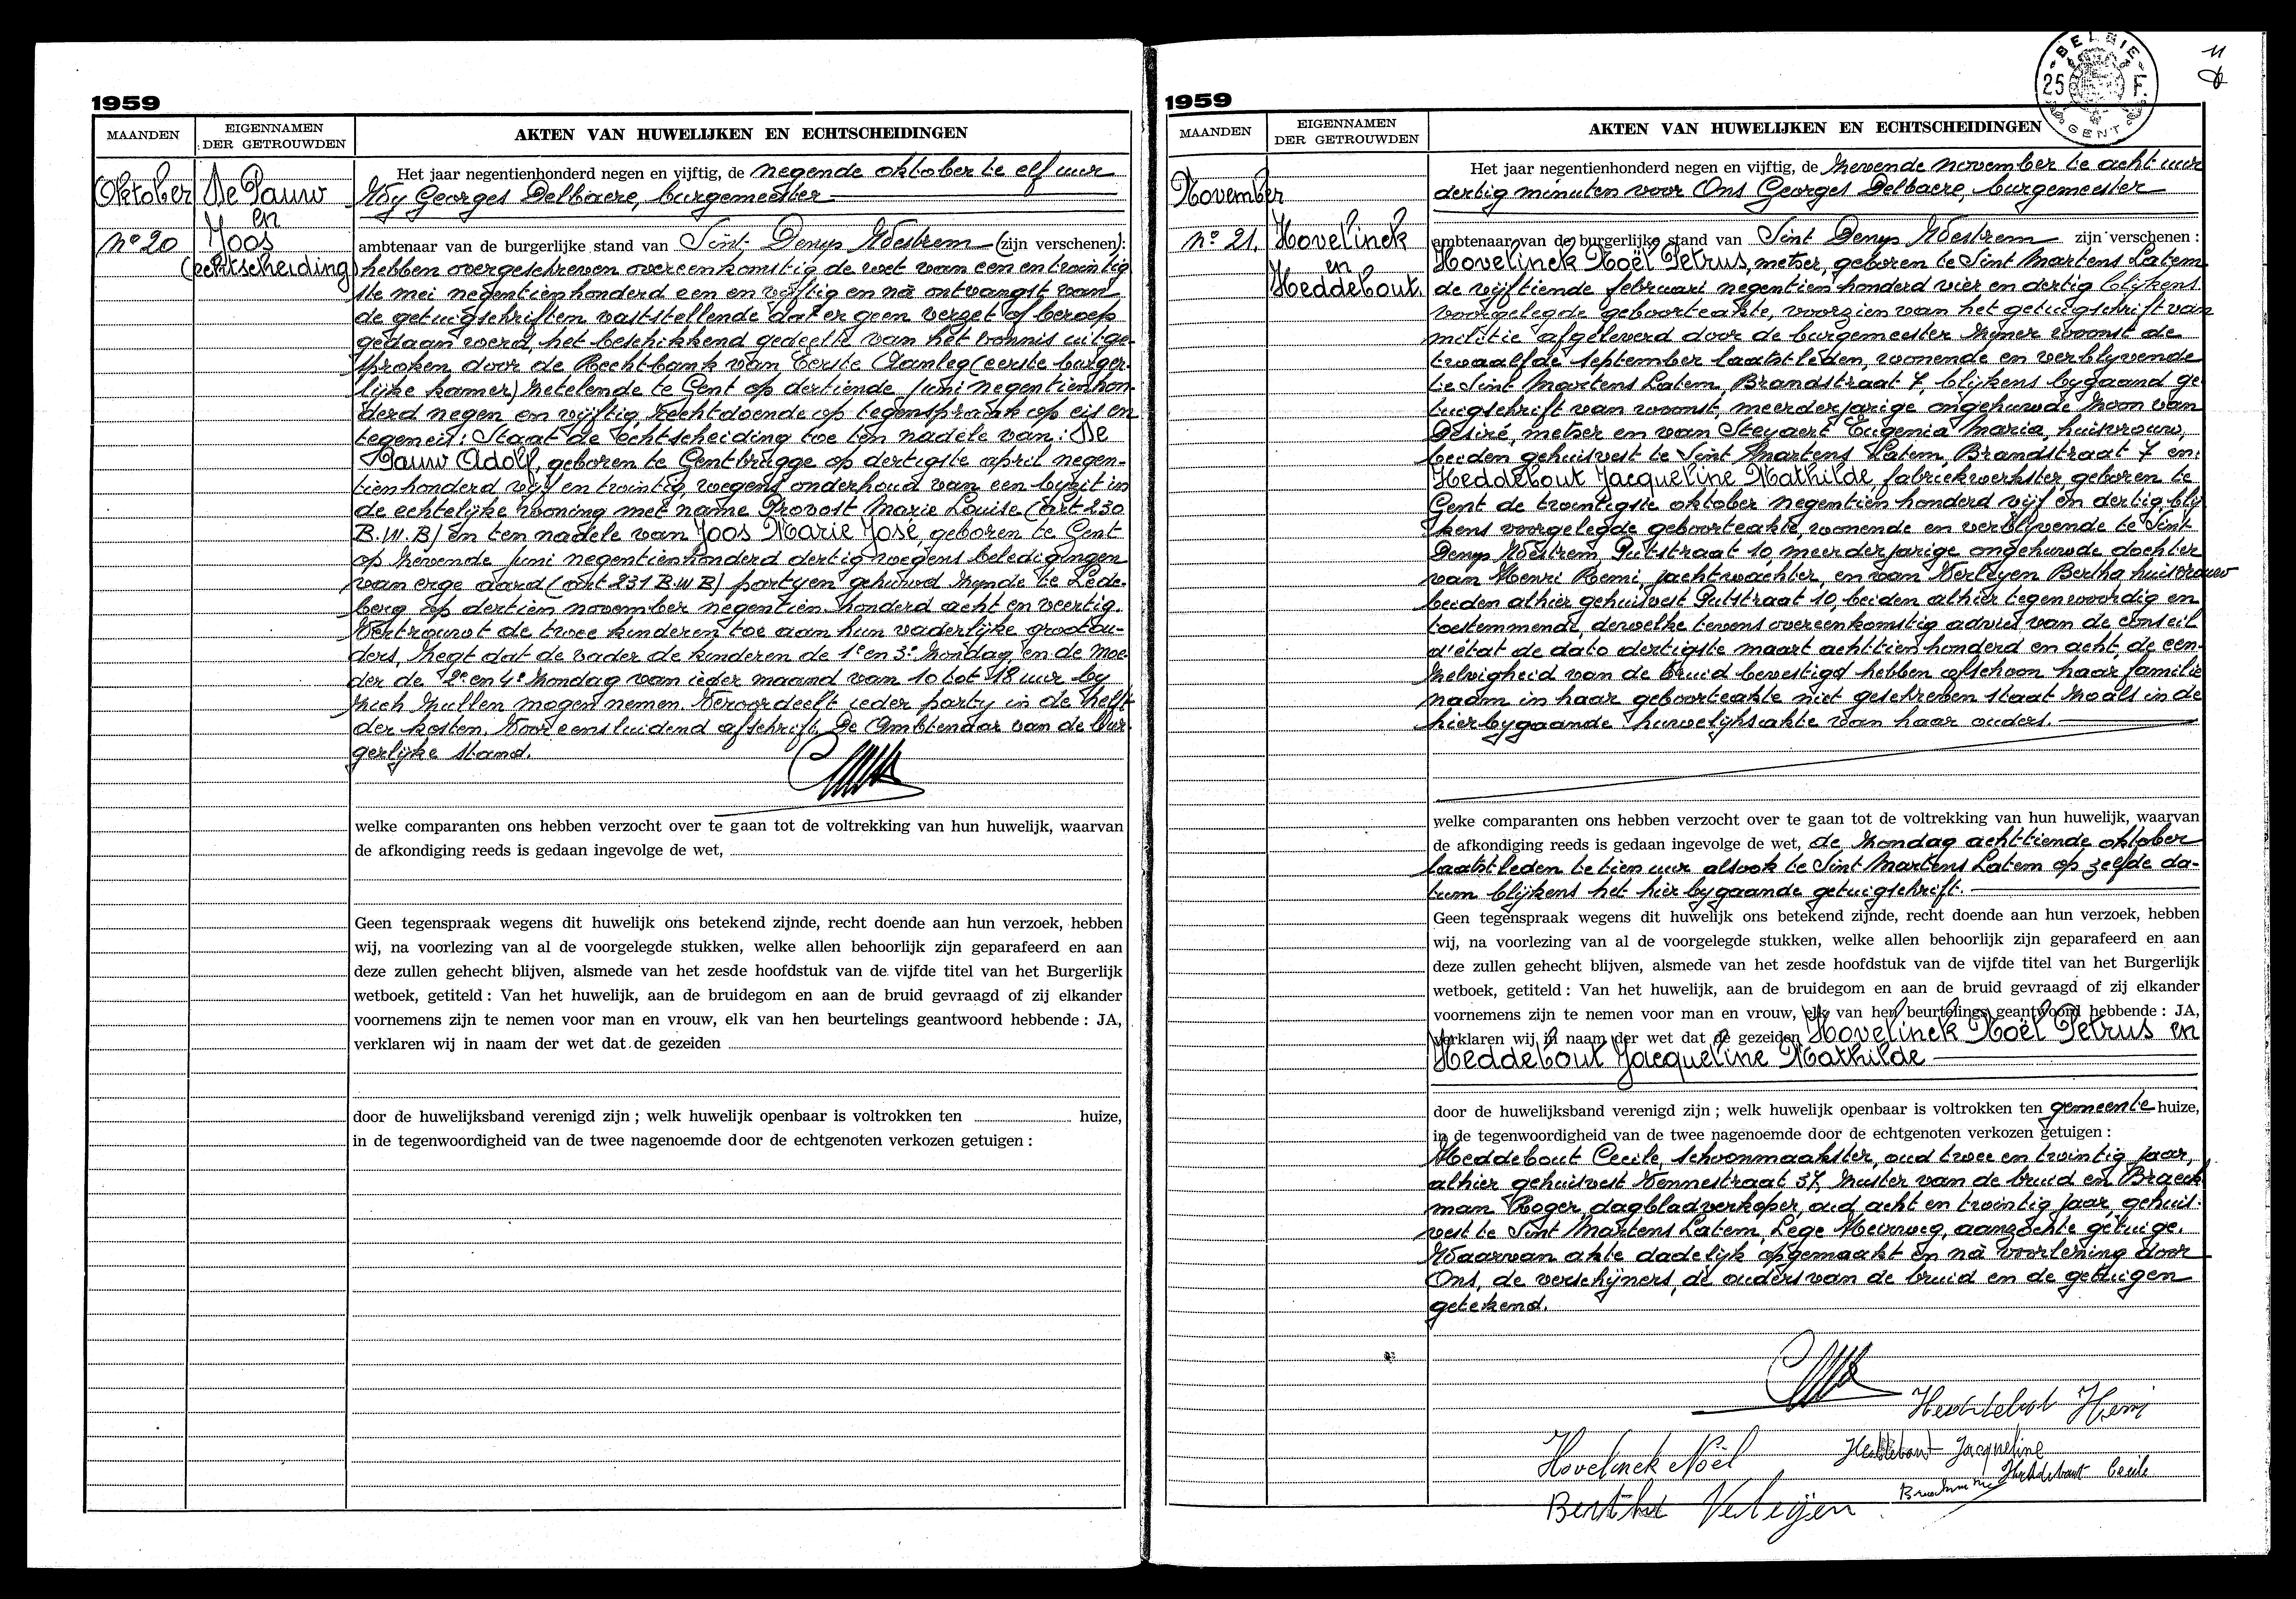 1959
MAANDEN
EIGENNAMEN
DER GETROUWDEN
AKTEN VAN HUWELIJKEN EN ECHTSCHEIDINGEN
Oktober
No 20
De Pauw
en
Joos
(echtscheiding)
Het jaar negentienhonderd negen en vijftig, de negende oktober te elf uur
Wij Georges Delbaere, burgemeester
ambtenaar van de burgerlijke stand van Sint Denys Westrem (zijn verschenen):
hebben overgeschreven overeenkomstig de wet van een en twintig
ste mei negentienhonderd een en vijftig en na ontvangst van
de getuigschriften vaststellende dat er geen verzet of beroep
gedaan werd, het beschikkend gedeelte van het vonnis uitge-
sproken door de Rechtbank van Eerste Aanleg (eerste burger-
lijke kamer) zetelende te Gent op dertiende juni negentienhon-
derd negen en vijftig, rechtdoende op tegenspraak op eis en
tegeneis: Staat de echtscheiding toe ten nadele van: De
Pauw Adolf, geboren te Gentbrugge op dertigste april negen-
tienhonderd vijf en twintig, wegens onderhoud van een byzit in
de echtelijke woning met name Provost Marie Louise (art 230
B.W.B) en ten nadele van Joos Marie José, geboren te Gent
op zevende juni negentienhonderd dertig wegens beledigingen
van erge aard (art 231 B.W.B) partyen gehuwd zynde te Lede-
berg op dertien november negentien honderd acht en veertig.
Vertrouwt de twee kinderen toe aan hun vaderlijke grootou-
ders, zegt dat de vader de kinderen de 1e en 3e zondag en de moe-
der de 2e en 4e zondag van ieder maand van 10 tot 18 uur by
zich zullen mogen nemen. Veroordeelt ieder party in de helft
der kosten. Voor eensluidend afschrift. De Ambtenaar van de Bur-
gerlijke stand.
welke comparanten ons hebben verzocht over te gaan tot de voltrekking van hun huwelijk, waarvan
de afkondiging reeds is gedaan ingevolge de wet,
Geen tegenspraak wegens dit huwelijk ons betekend zijnde, recht doende aan hun verzoek, hebben
wij, na voorlezing van al de voorgelegde stukken, welke allen behoorlijk zijn geparafeerd en aan
deze zullen gehecht blijven, alsmede van het zesde hoofdstuk van de vijfde titel van het Burgerlijk
wetboek, getiteld : Van het huwelijk, aan de bruidegom en aan de bruid gevraagd of zij elkander
voornemens zijn te nemen voor man en vrouw, elk van hen beurtelings geantwoord hebbende : JA,
verklaren wij in naam der wet dat de gezeiden
door de huwelijksband verenigd zijn ; welk huwelijk openbaar is voltrokken ten huize,
in de tegenwoordigheid van de twee nagenoemde door de echtgenoten verkozen getuigen :
1959
BELGIE
25 F.
GENT
11
MAANDEN
EIGENNAMEN
DER GETROUWDEN
AKTEN VAN HUWELIJKEN EN ECHTSCHEIDINGEN
November
No 21.
Hovelinck
en
Heddebout.
Het jaar negentienhonderd negen en vijftig, de zevende november te acht uur
dertig minuten voor Ons Georges Delbaere, burgemeester
ambtenaar van de burgerlijke stand van Sint Denys Westrem zijn verschenen :
Hovelinck Noël Petrus, metser, geboren te Sint Martens Latem
de vijftiende februari negentien honderd vier en dertig blijkens
voorgelegde geboorteakte, voorzien van het getuigschrift van
militie afgeleverd door de burgemeester zijner woonst de
twaalfde september laatstleden, wonende en verblyvende
te Sint Martens Latem, Brandstraat 7, blijkens bygaand ge-
tuigschrift van woonst, meerderjarige ongehuwde zoon van
Désiré, metser en van Steyaert Eugenia Maria, huisvrouw,
beiden gehuisvest te Sint Martens Latem, Brandstraat 7 en:
Heddebout Jacqueline Mathilde fabriekwerkster geboren te
Gent de twintigste oktober negentien honderd vijf en dertig, blij-
kens voorgelegde geboorteakte, wonende en verblijvende te Sint
Denys Westrem, Putstraat 10, meerderjarige ongehuwde dochter
van Henri Remi, jachtwachter, en van Verleyen Bertha, huisvrouw
beiden alhier gehuisvest Putstraat 10, beiden alhier tegenwoordig en
toestemmend, dewelke tevens overeenkomstig advies van de conseil
d'état de dato dertigste maart achttien honderd en acht, de een-
zelvigheid van de bruid bevestigd hebben ofschoon haar familie
naam in haar geboorteakte niet geschreven staat zoals in de
hierbygaande huwelijksakte van haar ouders.
welke comparanten ons hebben verzocht over te gaan tot de voltrekking van hun huwelijk, waarvan
de afkondiging reeds is gedaan ingevolge de wet, de zondag achttiende oktober
laatstleden te tien uur alsook te Sint Martens Latem op zelfde da-
tum blijkens het hier bygaande getuigschrift.
Geen tegenspraak wegens dit huwelijk ons betekend zijnde, recht doende aan hun verzoek, hebben
wij, na voorlezing van al de voorgelegde stukken, welke allen behoorlijk zijn geparafeerd en aan
deze zullen gehecht blijven, alsmede van het zesde hoofdstuk van de vijfde titel van het Burgerlijk
wetboek, getiteld : Van het huwelijk, aan de bruidegom en aan de bruid gevraagd of zij elkander
voornemens zijn te nemen voor man en vrouw, elk van hen beurtelings geantwoord hebbende : JA,
verklaren wij in naam der wet dat de gezeiden Hovelinck Noël Petrus en
Heddebout Jacqueline Mathilde
door de huwelijksband verenigd zijn ; welk huwelijk openbaar is voltrokken ten gemeente huize,
in de tegenwoordigheid van de twee nagenoemde door de echtgenoten verkozen getuigen :
Heddebout Cecile, schoonmaakster, oud twee en twintig jaar,
alhier gehuisvest Kennestraat 37, zuster van de bruid en Braeck
man Roger, dagbladverkoper, oud acht en twintig jaar, gehuis-
vest te Sint Martens Latem, Lege Heirweg, aanzochte getuige.
Waarvan akte dadelijk opgemaakt en na voorlezing door
Ons, de verschijners, de ouders van de bruid en de getuigen
getekend.
Heddebout Henri
Hovelinck Noël
Heddebout Jacqueline
Heddebout Cecile
Bertha Verleijen